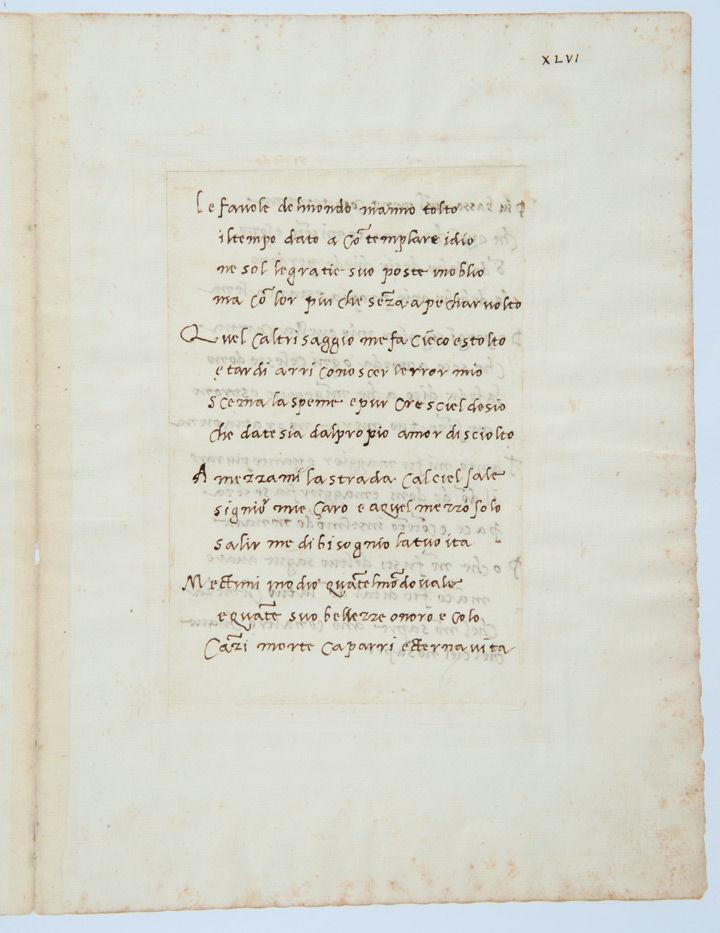 XLVI
Le favole delmondo manno tolto
iltempo dato a cō templare idio
ne sol legratie suo poste inoblio
ma cō lor piu che sēza a pechar volto
Quel caltri saggio me fa cieco estolto
e tardi a rri conoscer lerror mio
scema la speme epur crescieldesio
che datesia dalpropio amor disciolto
A mezzami lastrada calciel sale
signior mie caro e aquel mezzo solo
salir me di bisognio latuo ita
Mettimi inodio quātelmōdovale
e quāte suo bellezze onoro e colo
cāzi morte caparri etterna vita